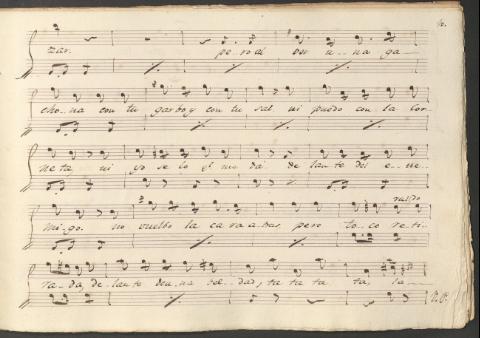 zar. pero al ver u_na ga_
cho_na con tu garbo y con tu sal ni puedo con la cor_
neta, ni yo se lo q.e me da. delante del e_ne_
ruido
mi_go. no vuelbo la cara atras, pero to_co reti_
ra_da, de_lante deu_na bel_dad, ta ta ta ta, la
V.P.